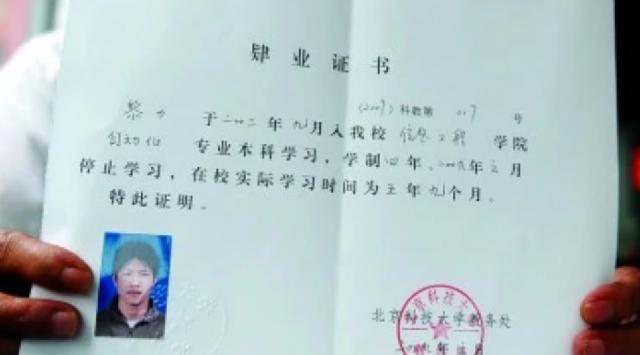 肆业证书
（2009）科教第 017 号
黎力 于二〇〇二年九月入我校信息工程学院
自动化 专业本科学习，学制四年。二〇〇九年六月
停止学习，在校实际学习时间为五年九个月。
特此证明。
北京科技大学教务处
二〇〇九年 月